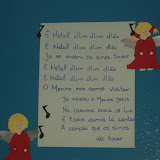 É Natal dlim dlim dlão
É Natal dlim dlim dlão
Já se ouvem os sinos tocar
É Natal dlim dlim dlão
É Natal dlim dlim dlão
O Menino nos vamos visitar
Já nasceu o Menino Jesus
Na caminha cheia de luz
E todos vamos lá cantar
A canção que os sinos
vão tocar